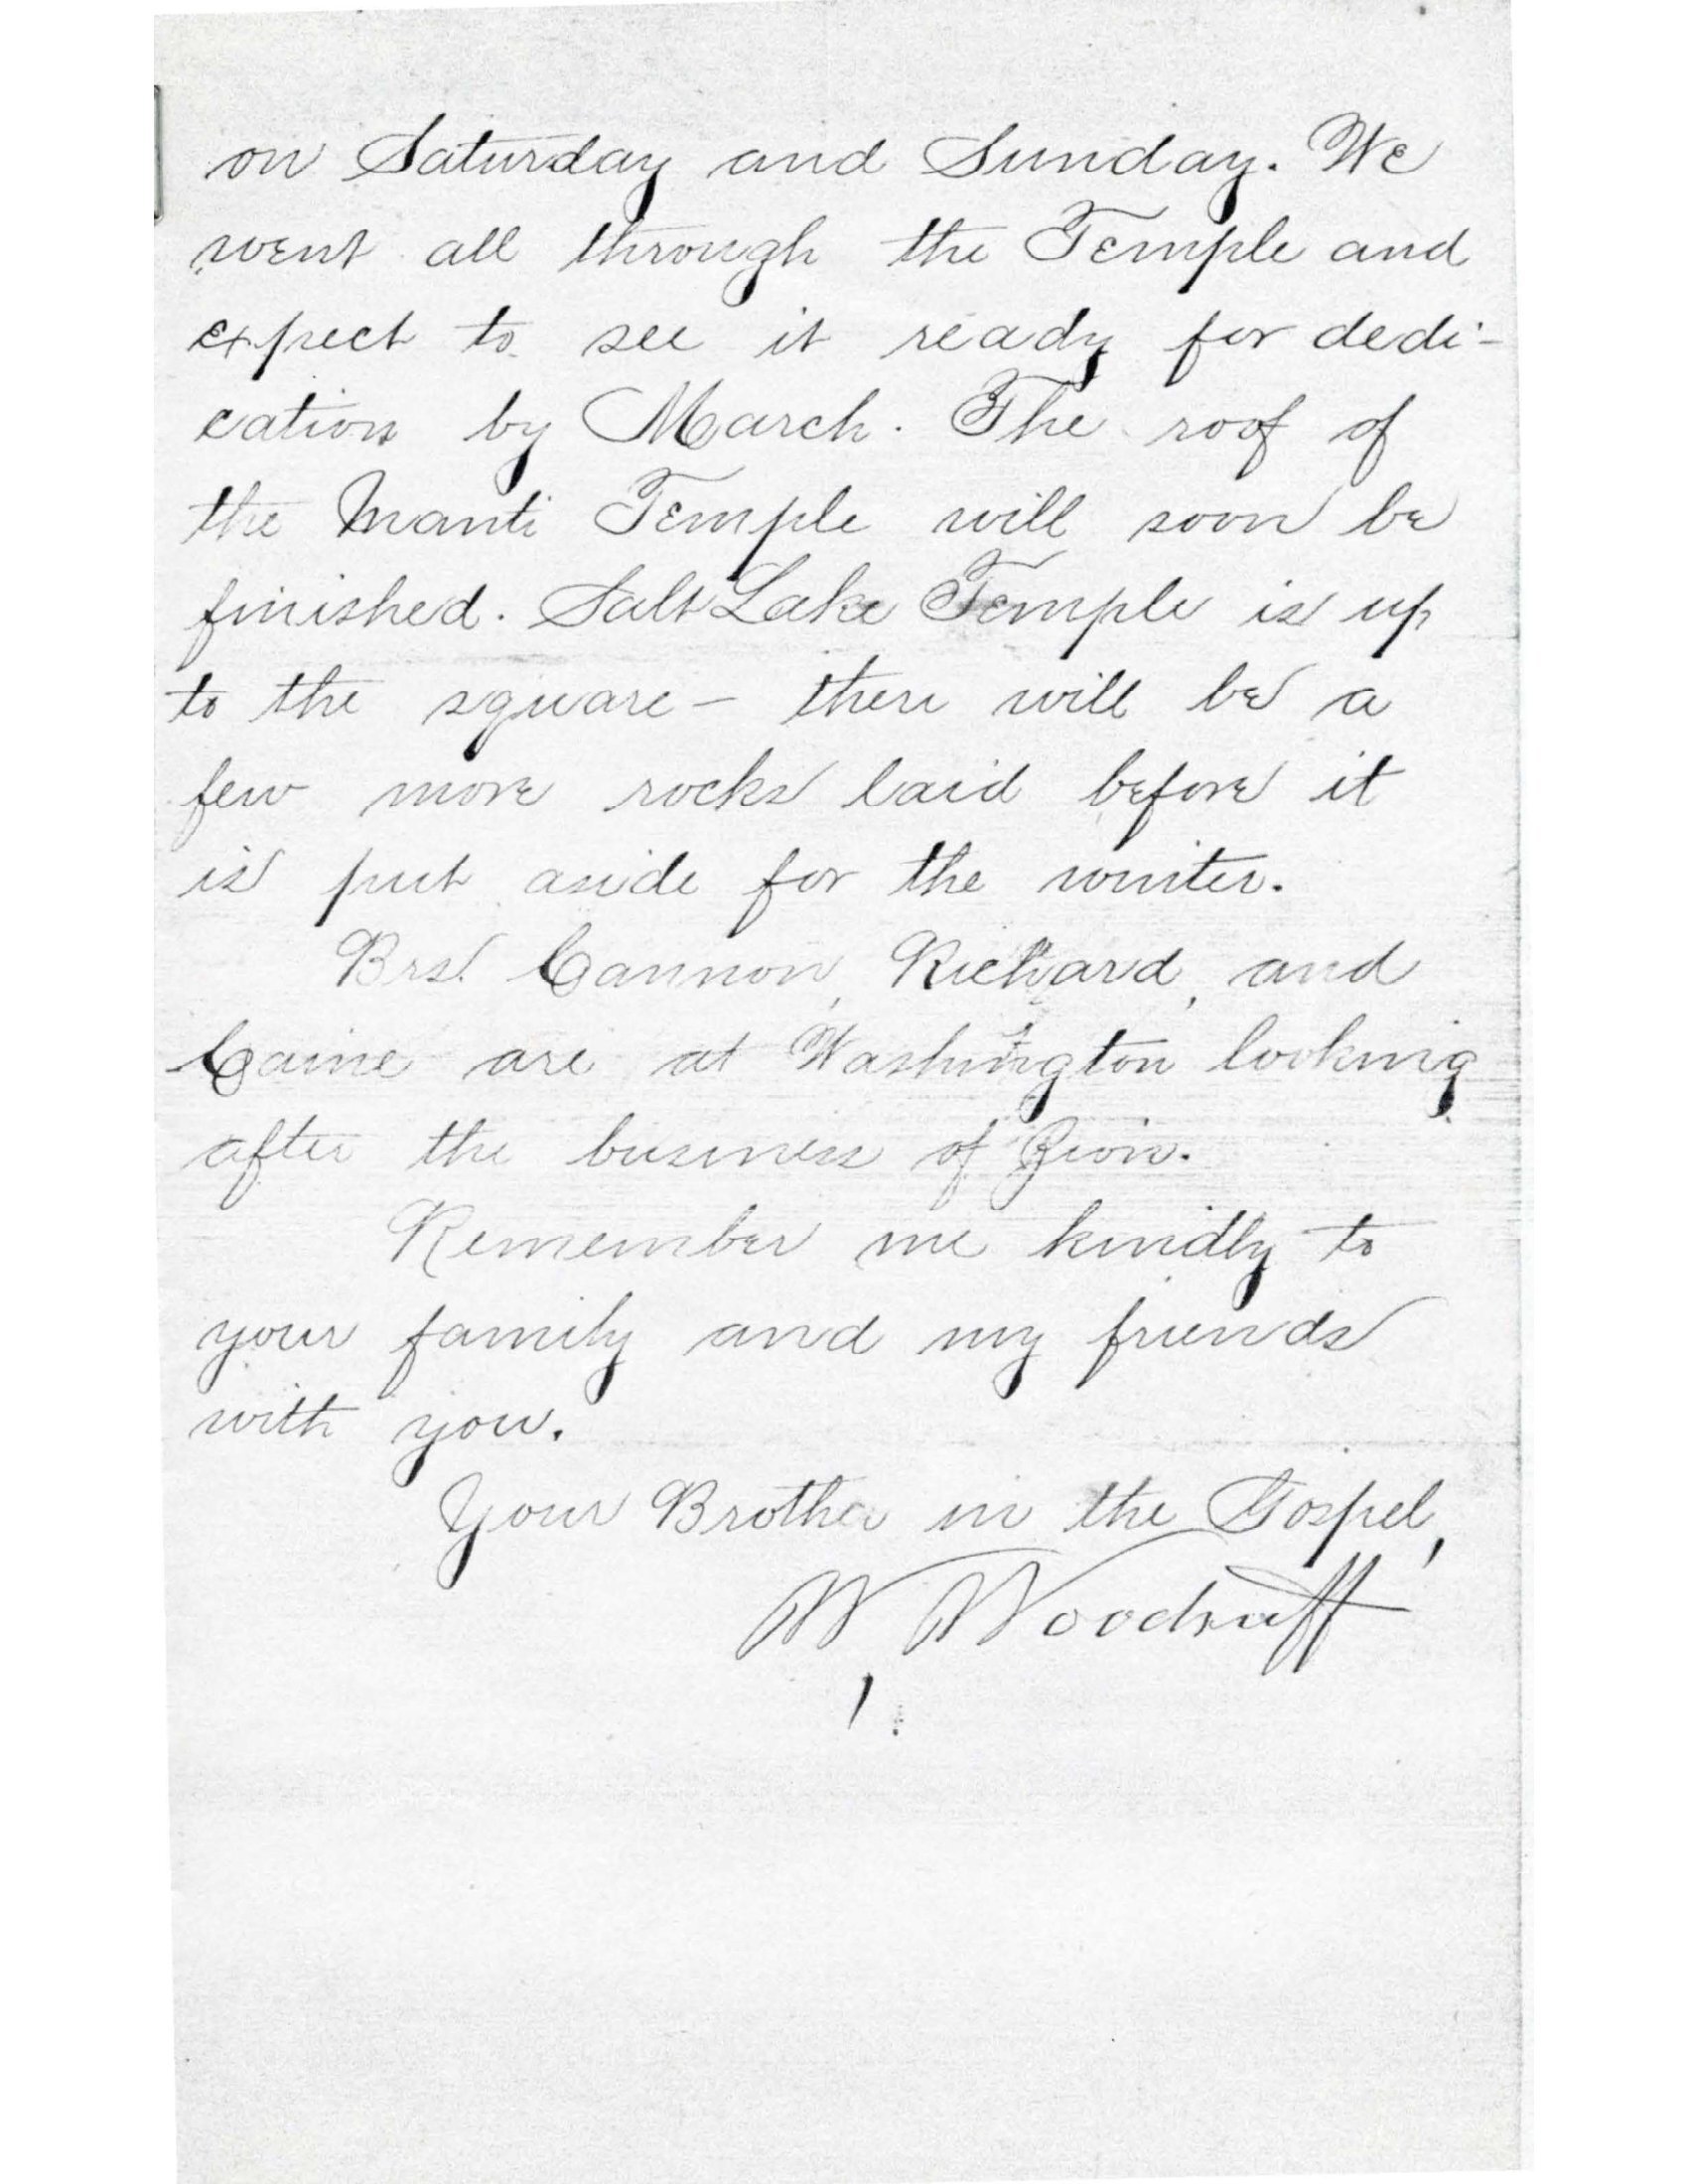 on Saturday and Sunday. We
went all through the Temple and
expect to see it ready for dedi-
cation by March. The roof of
the Manti Temple will soon be
finished. Salt Lake Temple is up
to the square – there will be a
few more rocks laid before it
is put aside for the winter.
Brs. Cannon, Richard, and
Caine are at Washington looking
after the business of Zion.
Remember me kindly to
your family and my friends
with you.
Your Brother in the Gospel,
W Woodruff